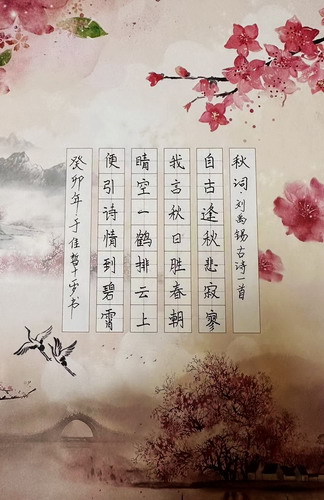 秋词·刘禹锡古诗一首
自古逢秋悲寂寥
我言秋日胜春朝
晴空一鹤排云上
便引诗情到碧霄
癸卯年于佳哲十岁书